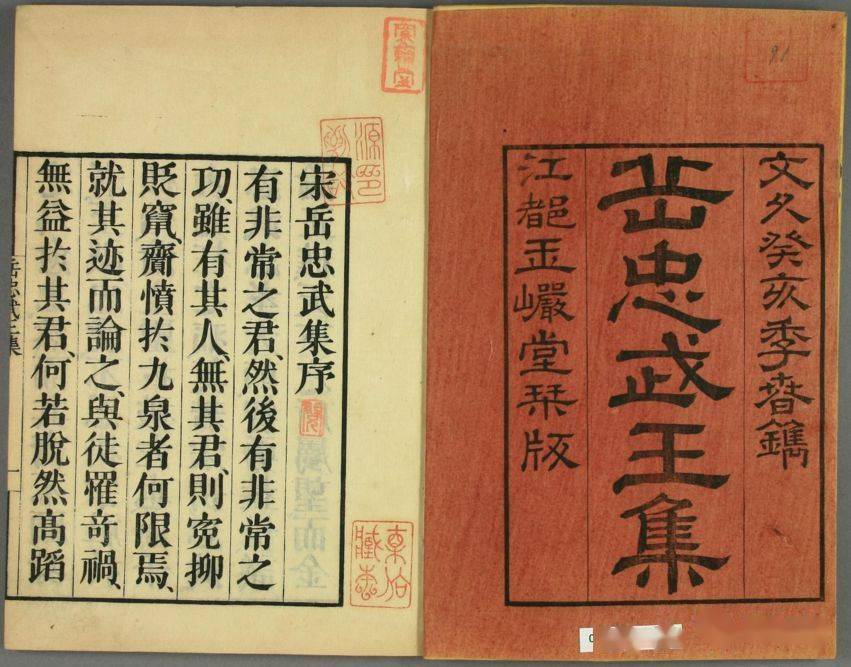 文久癸亥季春鐫
岳忠武王集
江都玉巖堂栞版
宋岳忠武集序
有非常之君、然後有非常之
功、雖有其人、無其君、則寃抑
貶竄、齎憤於九泉者何限焉、
就其迹而論之、與徒罹奇禍、
無益於其君、何若脫然高蹈
岳忠武王集
一